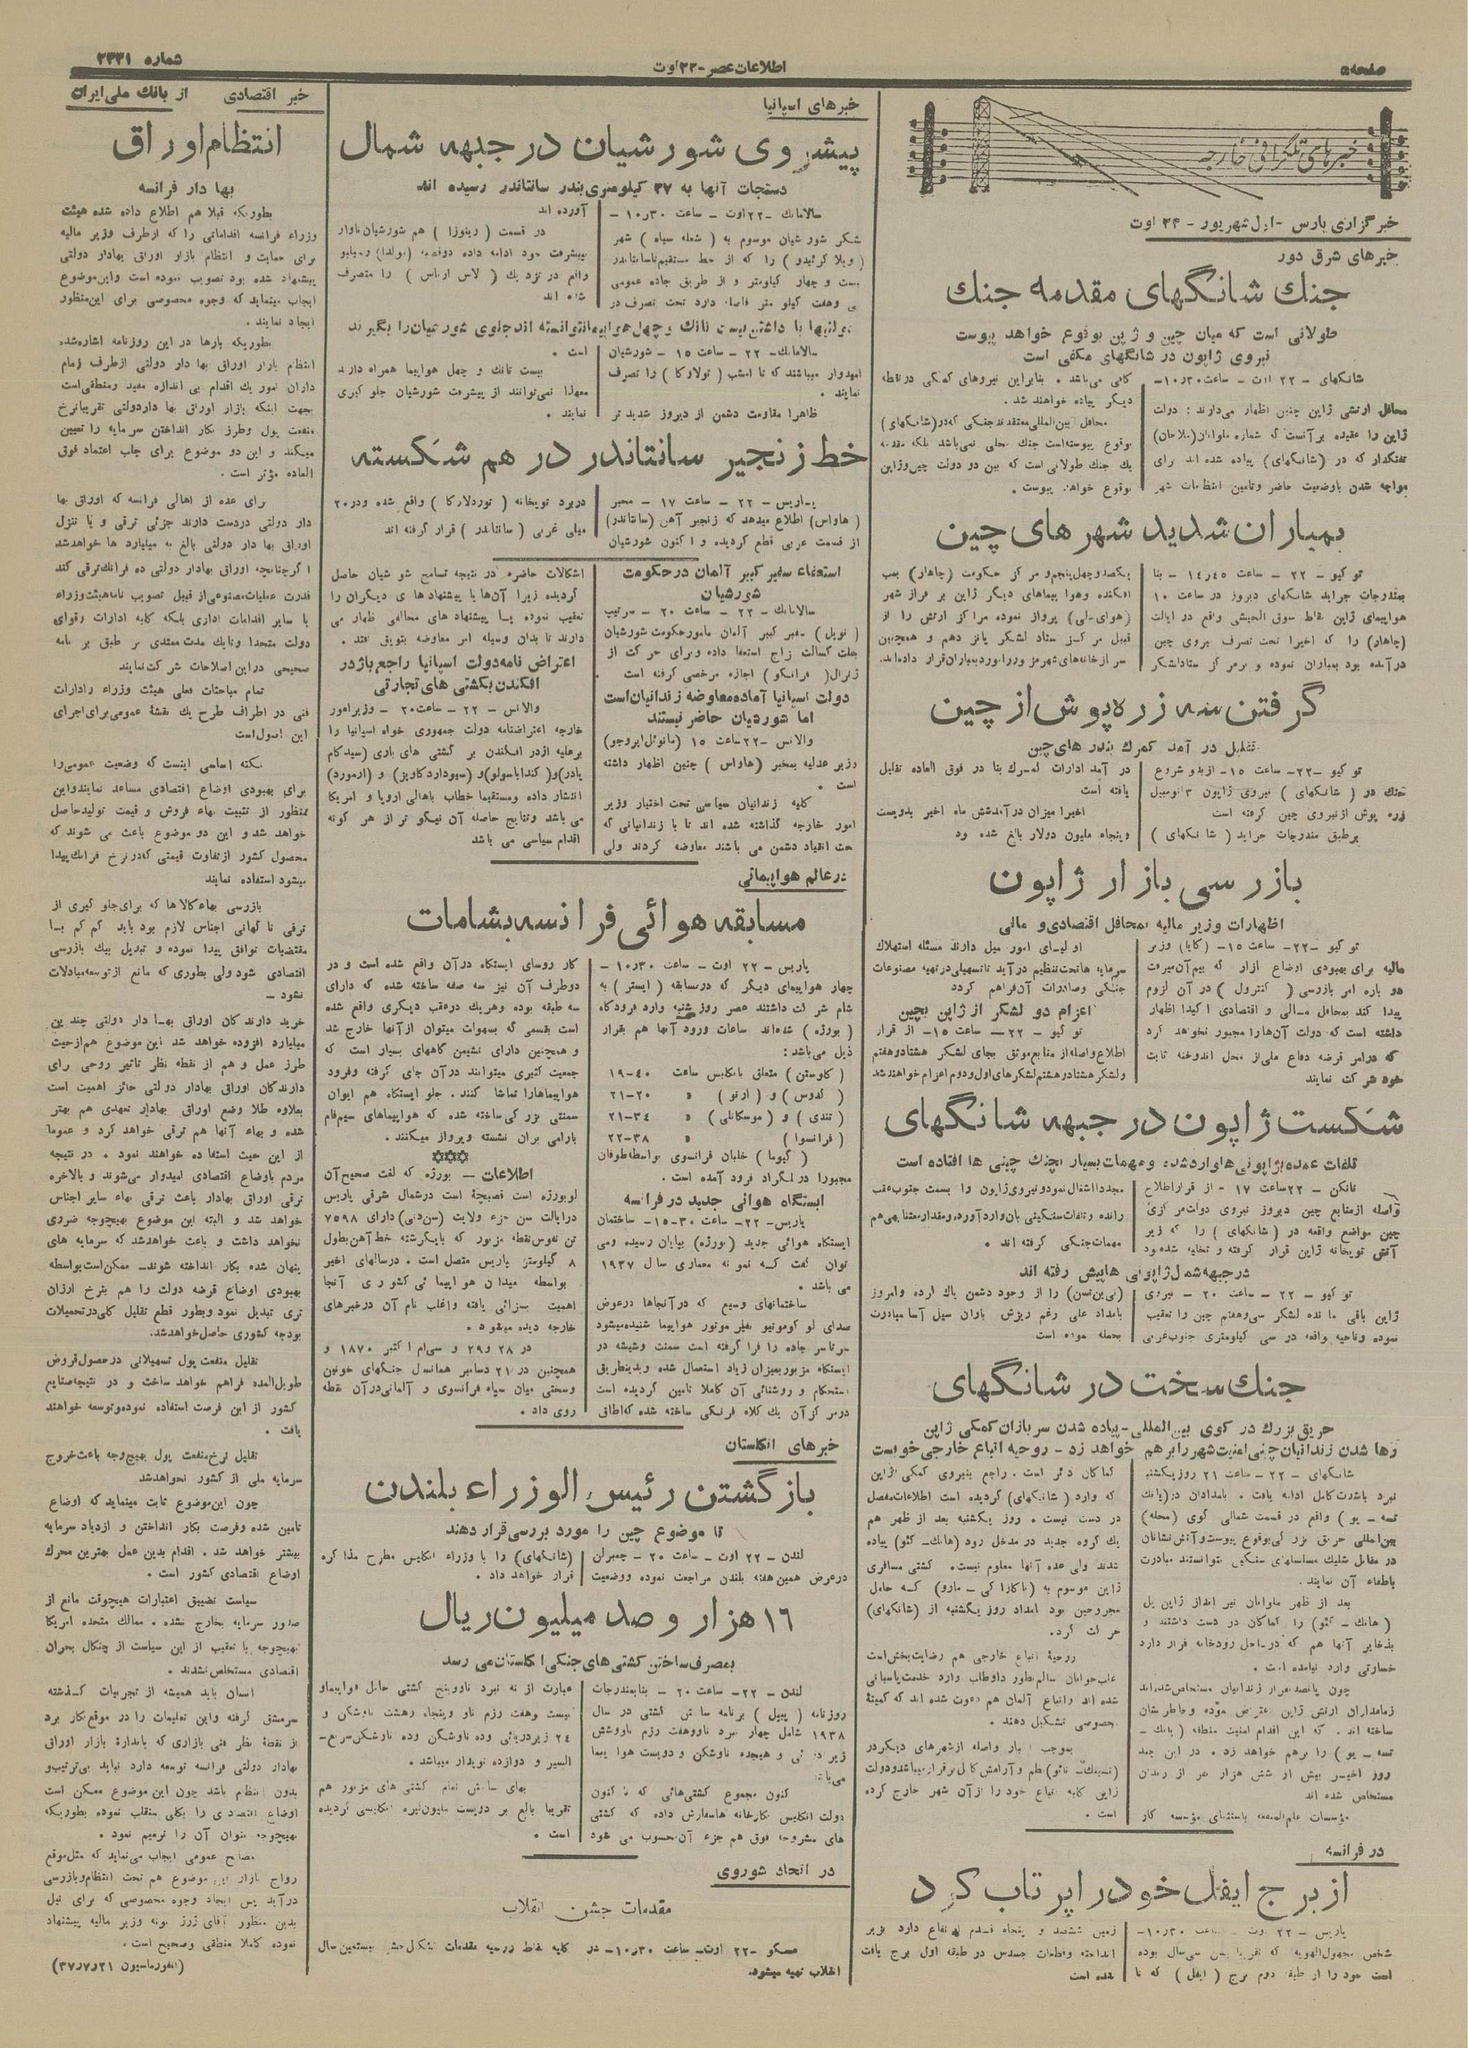 صفحه ۵
اطلاعات عصر -۲۲ اوت
شماره ۳۳۳۱
خبرهای تلگرافی خارجه
خبرگزاری پارس -اول شهریور - ۲۴ اوت
خبرهای شرق دور
جنك شانگهای مقدمه جنك
طولانی است که میان چین و ژاپن بوقوع خواهد پیوست
نیروی ژاپون در شانگهای مکفی است
شانگهای - ۲۲ اوت - ساعت ۱۰٫۳۰-
محافل ارتشی ژاپن چنین اظهار میدارند: دولت
ژاپن را عقیده بر آنست که شماره ملوانان (ملاحان)
تفنگدار که در (شانگهای) پیاده شده اند برای
مواجه شدن باوضعیت حاضر وتامین انتظامات شهر
کافی می‌باشد . بنابراین نیروهای کمکی در نقطه
دیگر پیاده خواهند شد.
محافل بین‌المللی معتقدند جنگی که در(شانگهای)
بوقوع پیوسته است جنك محلی نمی‌باشد بلکه مقدمه
یك جنك طولانی است که بین دو دولت چین وژاپن
بوقوع خواهد پیوست .
بمباران شدید شهرهای چین
تو کیو - ۲۲ - ساعت ۱۴٫۴۵ - بنا
بمندرجات جراید شانگهای دیروز در ساعت ۱۰
هواپیمای ژاپن نقاط سوق الجیشی واقع در ایالت
(چاهار) را که اخیرا تحت تصرف نیروی چین
درآمده بود بمباران نموده و بر مرکز ستاد لشکر
یکصد و چهل پنجم و مرکز حکومت (چاهار) بمب
افکنده وهواپیماهای دیگر ژاپن بر فراز شهر
(هوای-لی) پرواز نموده مراکز ارتش را از
قبیل مرکز ستاد لشکر پانزدهم و همچنین
سربازخانه‌های شهر مزبور را مورد بمباران قرار داده‌اند.
گرفتن سه زره‌پوش از چین
تقلیل در آمد گمرك بندرهای چین
تو کیو -۲۲- ساعت ۱۵- از بدو شروع
جنك در (شانگهای) نیروی ژاپون ۳ اتومبیل
زره پوش از نیروی چین گرفته است
برطبق مندرجات جراید (شانگهای)
در آمد ادارات گمرك بنا در فوق العاده تقلیل
یافته است
اخیرا میزان درآمد شش ماه اخیر بدویست
وپنجاه ملیون دولار بالغ شده بود
بازرسی بازار ژاپون
اظهارات وزیر مالیه بمحافل اقتصادی و مالی
تو کیو -۲۲- ساعت ۱۵- (کایا) وزیر
مالیه برای بهبودی اوضاع بازار که بیم آن میرفت
دو باره امر بازرسی (کنترول) در آن لزوم
پیدا کند بمحافل مالی و اقتصادی اکیدا اظهار
داشته است که دولت آن‌هارا مجبور نخواهد کرد
که درامر قرضه دفاع ملی از محل اندوخته ثابت
خود شرکت نمایند
اولیای امور میل دارند مسئله استهلاك
سرمایه هاتحت تنظیم درآید تاتسهیلی در تهیه مصنوعات
جنگی وصادرات آن فراهم گردد
اعزام دو لشگر از ژاپن بچین
تو کیو - ۲۲- ساعت ۱۵- از قرار
اطلاع واصله از منابع موثق بجای لشکر هشتاد وهفتم
ولشکر هشتاد و هشتم لشکرهای اول ودوم اعزام خواهند شد
شکست ژاپون در جبهه شانگهای
تلفات عمده بژاپونی‌ها وارد شده و مهمات بسیار بچنك چینی ها افتاده است
نانکن - ۲۲ساعت ۱۷ - از قراراطلاع
واصله از منابع چین دیروز نیروی دولت مرکزی
چین مواضع واقعه در (شانگهای) را که زیر
آتش توپخانه ژاپن قرار گرفته و تخلیه شده بود
مجددا اشغال نمود ونیروی ژاپون را بسمت جنوب عقب
رانده وتلفات سنگینی بآن وارد آورده، ومقدار معتنابهی هم
مهمات جنگی گرفته اند .
در جبهه شمال ژاپونی هاپیش رفته اند
تو کیو - ۲۲ - ساعت ۲۰ - نیروی
ژاپن باقی مانده لشکر سی وهفتم چین را تعقیب
نموده وناحیه واقعه در سی کیلومتری جنوب غربی
(نی‌ین‌تسن) را از وجود دشمن پاك کرده وامروز
بامداد علی رغم ریزش باران سیل آسا مبادرت
بحمله نموده است
جنك سخت در شانگهای
حریق بزرك در کوی بین‌المللی - پیاده شدن سربازان کمکی ژاپن
رها شدن زندانیان چینی امنیت شهر را بر هم خواهد زد - روحیه اتباع خارجی خوبست
شانگهای - ۲۲ - ساعت ۲۱ روز یکشنبه
نبرد باشدت کامل ادامه یافت . بامدادان در(یانك
تسه - پو) واقع در قسمت شمالی کوی (محله)
بین‌المللی حریق بزرگی بوقوع پیوست و آتش نشانان
در مقابل شلیك مسلسلهای سنگین نتوانستند مبادرت
باطفاء آن نمایند.
بعد از ظهر ملوانان نیر انداز ژاپن پل
(هانك - کئو) را کماکان در دست داشتند و
بذخایر آنها هم که در داخل رودخانه قرار دارد
خسارتی وارد نیامده است .
چون پانصد هزار زندانیان مستخلص شده‌اند
زمامداران ارتش ژاپن اعتراض نموده و خاطر نشان
ساخته اند . که این اقدام امنیت منطقه (یانك -
تسه - پو) را برهم خواهد زد . در این چند
روز اخیر بیش از شش هزار نفر از زندان
مستخلص شده اند
مؤسسات عام‌المنفعه باستثنای مؤسسه گاز
کماکان دائر است . راجع بنیروی کمکی ژاپن
که وارد (شانگهای) گردیده است اطلاعات مفصل
در دست نیست . روز یکشنبه بعد از ظهر هم
یك گروه جدید در مدخل رود (هانك- کئو) پیاده
شدند ولی عده آنها معلوم نیست . کشتی مسافری
ژاپن موسوم به (ناکازاکی - مارو) که حامل
مجروحین بود بامداد روز یکشنبه از (شانگهای)
حرکت کرد.
روحیهٔ اتباع خارجی هم رضایت‌بخش است
اغلب جوانان سالم بطور داوطلب وارد خدمت پاسبانی
شده اند واتباع آلمان هم دعوت شده اند که کمیتهٔ
مخصوصی تشکیل دهند .
بموجب اخبار واصله از شهرهای دیگر در
(تسینك- تائو) نظم و آرامش کامل برقرار میباشد و دولت
ژاپن کلیه اتباع خود را از آن شهر خارج کرده
است .
در فرانسه
از برج ایفل خود را پرتاب کرد
پاریس - ۲۲ اوت - ساعت ۱۰٫۳۰-
شخص مجهول‌الهویه که تقریبا سن سی‌سال بوده
است خود را از طبقه دوم برج (ایفل) که تا
زمین ششصد و پنجاه قدم ارتفاع دارد بزیر
انداخته وقطعات جسدش در طبقه اول برج یافت
شده است
خبرهای اسپانیا
پیشروی شورشیان در جبهه شمال
دستجات آنها به ۲۷ کیلومتری بندر سانتاندر رسیده اند
سالامانك -۲۲ اوت - ساعت ۱۰٫۳۰ -
لشکر شورشیان موسوم به (شعله سیاه) شهر
(ویلا کریدو) را که از خط مستقیم تاسانتاندر
بیست و چهار کیلومتر و از طریق جاده عمومی
سی وهفت کیلومتر فاصله دارد تحت تصرف در
آورده اند
در قسمت (رینوزا) هم شورشیان ناوار
پیشرفت خود ادامه داده دو قصبه (مولدا) و
واقع در نزدیك (لاس ارناس) را متصرف
شده اند
دولتیها با داشتن بیست تانك و چهل هواپیما نتوانسته اند جلوی شورشیان را بگیرند
سالامانك- ۲۲ - ساعت ۱۵ - شورشیان
امیدوار میباشند که تا امشب (تولاوکا) را تصرف
نمایند .
ظاهرا مقاومت دشمن از دیروز شدید تر
است .
بیست تانك و چهل هواپیما همراه دارند
معهذا نمی‌توانند از پیشرفت شورشیان جلو گیری
نمایند .
خط زنجیر سانتاندر در هم شکسته
پاریس - ۲۲ - ساعت ۱۷ - مخبر
(هاواس) اطلاع میدهد که زنجیر آهن (سانتاندر)
از قسمت غربی قطع گردیده و اکنون شورشیان
در برد توپخانه (توردلاوکا) واقع شده ودر ۲۰
میلی غربی (سانتاندر) قرار گرفته اند
استعفاء سفیر کبیر آلمان در حکومت
شورشیان
سالامانك - ۲۲ - ساعت ۲۰ - سرتیپ
(نوپل) سفیر کبیر آلمان مامور حکومت شورشیان
بعلت کسالت مزاج استعفا داده وبرای حرکت از
ژنرال (فرانکو) اجازه مرخصی گرفته است
دولت اسپانیا آماده معاوضه زندانیان است
اما شورشیان حاضر نیستند
والانس -۲۲ساعت ۱۵ (مانوئل ایروجو)
وزیر عدلیه بمخبر (هاواس) چنین اظهار داشته
است .
کلیه زندانیان سیاسی تحت اختیار وزیر
امور خارجه گذاشته شده اند تا با زندانیانی که
تحت انقیاد دشمن می باشند معاوضه گردند ولی
اشکالات حاضره در نتیجه تسامح شورشیان حاصل
گردیده زیرا آن‌ها با پیشنهادهای دیگران را
تعقیب نموده یا پیشنهادهای مخالفی اظهار می
دارند تا بدان وسیله امر معاوضه بتعویق افتد .
اعتراض نامه دولت اسپانیا راجع باژدر
افکندن بکشتی های تجارتی
والانس - ۲۲ - ساعت ۲۰ - وزیر امور
خارجه اعتراضنامه دولت جمهوری خواه اسپانیا را
برعلیه اژدر افکندن بر کشتی های باری (سیدکام
پادر)و( کنداباسولو)و (سیودادد کادیز) و (ارمورد)
انتشار داده ومستقیما خطاب باهالی اروپا و امریکا
می باشد ونتایج حاصله آن نیکو تر از هر گونه
اقدام سیاسی می باشد
در عالم هواپیمائی
مسابقه هوائی فرانسه بشامات
پاریس - ۲۲ اوت - ساعت ۱۰٫۳۰ -
چهار هواپیمای دیگر که در مسابقه (ایستر) به
شام شرکت داشتند عصر روز شنبه وارد فرودگاه
(بورژه) شده‌اند ساعات ورود آنها هم بقرار
ذیل می‌باشد :
(کلوستن) متعلق بانگلیس ساعت ۱۹-۴۰
(کدوس) و (ارنو) « ۲۱-۲۰
(تندی) و (موسکاتلی) « ۲۱-۳۴
(فرانسوا) « ۲۲-۳۸
(گیوما) خلبان فرانسوی بواسطه طوفان
مجبورا در بلگراد فرود آمده است .
ایستگاه هوائی جدید در فرانسه
پاریس- ۲۲- ساعت ۱۵-۳۰- ساختمان
ایستگاه هوائی جدید (بورژه) بپایان رسیده ومی
توان گفت که نمونه معماری سال ۱۹۳۷
می باشد .
ساختمانهای وسیع که در آنجاها در عوض
صدای لو کوموتیو نفیر موتور هواپیما شنیده میشود
سرتاسر جاده را فرا گرفته است سمنت وشیشه در
ایستگاه مزبور بمیزان زیاد استعمال شده و بدینطریق
استحکام و روشنائی آن کاملا تامین گردیده است
در مرکز آن یك کلاه فرنگی ساخته شده که اطاق
کار روسای ایستگاه در آن واقع شده است و در
دوطرف آن نیز سه صفه ساخته شده که دارای
سه طبقه بوده وهریك در عقب دیگری واقع شده
است بقسمی که بسهولت میتوان از آنها خارج شد
و همچنین دارای نشیمن گاههای بسیار است که
جمعیت کثیری میتوانند در آن جای گرفته وفرود
هواپیماهارا تماشا کنند . جلو ایستگاه هم ایوان
سمنتی بزرگی ساخته شده که هواپیماهای سیم‌فام
بآرامی بران نشسته و پرواز میکنند.
اطلاعات - بورژه که لغت صحیح آن
لو بورژه است قصبچهٔ است درشمال شرقی پاریس
درایالت سن جزء ولایت (سن‌دنی) دارای ۷۵۹۸
تن نفوس نقطه مزبور که بایکرشته خط آهن بطول
۸ کیلومتر پاریس متصل است . درسالهای اخیر
بواسطه میدان هواپیمائی کشوری آنجا
اهمیت بسزائی یافته واغلب نام آن در خبرهای
خارجه دیده میشود .
در ۲۸ و۲۹ و سی‌ام اکتبر ۱۸۷۰ و
همچنین در ۲۱ دسامبر همانسال جنگهای خونین
وسختی میان سپاه فرانسوی و آلمانی در آن نقطه
روی داد .
خبرهای انگلستان
بازگشتن رئیس الوزراء بلندن
تا موضوع چین را مورد بررسی قرار دهند
لندن - ۲۲ اوت - ساعت ۲۰ - چمبرلن
درعرض همین هفته بلندن مراجعت نموده ووضعیت
(شانگهای) را با وزراء انگلیس مطرح مذاکره
قرار خواهد داد .
۱۶ هزار و صد میلیون ریال
بمصرف ساختن کشتی‌های جنگی انگلستان می رسد
لندن - ۲۲- ساعت ۲۰ - بنا بمندرجات
روزنامه (پیپل) برنامه ساختن کشتی در سال
۱۹۳۸ شامل چهار نبرد ناو وهفت رزم ناو وشش
زیردریائی و هیجده ناوشکن و دویست هوا پیما
می‌باشد
کنون مجموع کشتی‌هائی که تا کنون
دولت انگلیس بکارخانه هاسفارش داده که کشتی
های مشروحه فوق هم جزء آن محسوب می شود
عبارت از نه نبرد ناو وپنج کشتی حامل هواپیما و
بیست وهفت رزم ناو وپنجاه وهشت ناوشکن و
۲۴ زیردریائی وده ناوشگن وده ناوشکن سریع-
السیر و دوازده توپدار میباشد .
بهای ساختن تمام کشتی های مزبور هم
تقریبا بالغ بر دویست ملیون لیره انگلیسی گردیده
است .
در اتحاد شوروی
مقدمات جشن انقلاب
مسکو -۲۲ اوت- ساعت ۱۰٫۳۰- در کلیه نقاط روسیه مقدمات تشکیل جشن بیستمین سال
انقلاب تهیه میشود.
خبر اقتصادی از بانك ملی ایران
انتظام اوراق
بها دار فرانسه
بطوریکه قبلا هم اطلاع داده شده هیئت
وزراء فرانسه اقداماتی را که ازطرف وزیر مالیه
برای حمایت و انتظام بازار اوراق بهادار دولتی
پیشنهاد شده بود تصویب نموده است واین موضوع
ایجاب مینماید که وجوه مخصوصی برای این منظور
ایجاد نمایند .
بطوریکه بارها در این روزنامه اشاره شده
انتظام بازار اوراق بها دار دولتی ازطرف زمام
داران امور یك اقدام بی اندازه مفید ومنطقی است
بجهت اینکه بازار اوراق بها داردولتی تقریبا نرخ
منفعت پول وطرز بکار انداختن سرمایه را تعیین
میکند و این دو موضوع برای جلب اعتماد فوق
العاده مؤثر است .
برای عده از اهالی فرانسه که اوراق بها
دار دولتی دردست دارند جزئی ترقی و یا تنزل
اوراق بها دار دولتی بالغ به میلیارد ها خواهد شد
اگر چنانچه اوراق بهادار دولتی ده فرانك ترقی کند
قدرت عملیات مصنوعی از قبیل تصویب نامه هیئت وزراء
یا سایر اقدامات اداری بلکه کلیه ادارات رقوای
دولت متحدا وتایك مدت ممتدی بر طبق بر نامه
صحیحی دراین اصلاحات شرکت نمایند
تمام مباحثات فعلی هیئت وزراء رادارات
فنی در اطراف طرح یك نقشهٔ عمومی برای اجرای
این اصول است
نکته اساسی اینست که وضعیت عمومی را
برای بهبودی اوضاع اقتصادی مساعد نمایند واین
منظور از تثبیت بهاء فروش و قیمت تولید حاصل
خواهد شد و این دو موضوع باعث می شوند که
محصول کشور از تفاوت قیمتی که در نرخ فرانك پیدا
میشود استفاده نمایند
بازرسی بهاء کالا ها که برای جلو گیری از
ترقی نا گهانی اجناس لازم بود باید کم کم بـا
مقتضیات توافق پیدا نموده و تبدیل بیك بازرسی
اقتصادی شود ولی بطوری که مانع از توسعه مبادلات
نشود -
خرید دارندگان اوراق بهـا دار دولتی چندین
میلیارد افزوده خواهد شد این موضوع هم از حیث
طرز عمل و هم از نقطه نظر تاثیر روحی برای
دارندگان اوراق بهادار دولتی حائز اهمیت است
بعلاوه طلا وضع اوراق بهادار تعهدی هم بهتر
شده و بهاء آنها هم ترقی خواهد کرد و عموما
از این حیث استفاده خواهند نمود . بطوریکه
مردم باوضاع اقتصادی امیدوار می‌شوند و بالاخره
ترقی اوراق بهادار باعث ترقی بهاء سایر اجناس
خواهد شد و البته این موضوع بهیچوجه ضرری
نخواهد داشت و باعث خواهد شد که سرمایه های
پنهان شده بکار انداخته شوند- ممکن است بواسطه
بهبودی اوضاع قرضه دولت را هم بنرخ ارزان
تری تبدیل نمود وبطور قطع تقلیل کلی در تحمیلات
بودجه کشوری حاصل خواهد شد.
تقلیل منفعت پول تسهیلاتی در حصول قروض
طویل‌المده فراهم خواهد ساخت و در نتیجه صنایع
کشور از این فرصت استفاده نموده و توسعه خواهند
یافت .
تقلیل نرخ منفعت پول بهیچوجه باعث خروج
سرمایه ملی از کشور نخواهد شد
چون این موضوع ثابت مینماید که اوضاع
تامین شده وفرصت بکار انداختن و ازدیاد سرمایه
بیشتر خواهد شد . اقدام بدین عمل بهترین محرك
اوضاع اقتصادی کشور است .
سیاست تضییق اعتبارات هیچوقت مانع از
صدور سرمایه بخارج نشده . ممالك متحده امریکا
بهیچوجه با تعقیب از این سیاست از چنگال بحران
اقتصادی مستخلص نشدند .
انسان باید همیشه از تجربیات گذشته
سرمشق گرفته واین تعلیمات را در موقع بکار برد
از نقطهٔ نظر فنی بازاری که باندازهٔ بازار اوراق
بهادار دولتی فرانسه توسعه دارد نباید بی‌ترتیب و
بدون انتظام باشد چون این موضوع ممکن است
اوضاع اقتصادی را بکلی منقلب نموده بطوریکه
بهیچوجه نتوان آن را ترمیم نمود .
مصالح عمومی ایجاب می‌نماید که مثل موقع
رواج بازار این موضوع هم تحت انتظام وبازرسی
درآید پس ایجاد وجوه مخصوصی که برای نیل
بدین منظور آقای ژرژ بونه وزیر مالیه پیشنهاد
نموده کاملا منطقی وصحیح است .
(انفورماسیون ۳۷٫۷٫۲۱)